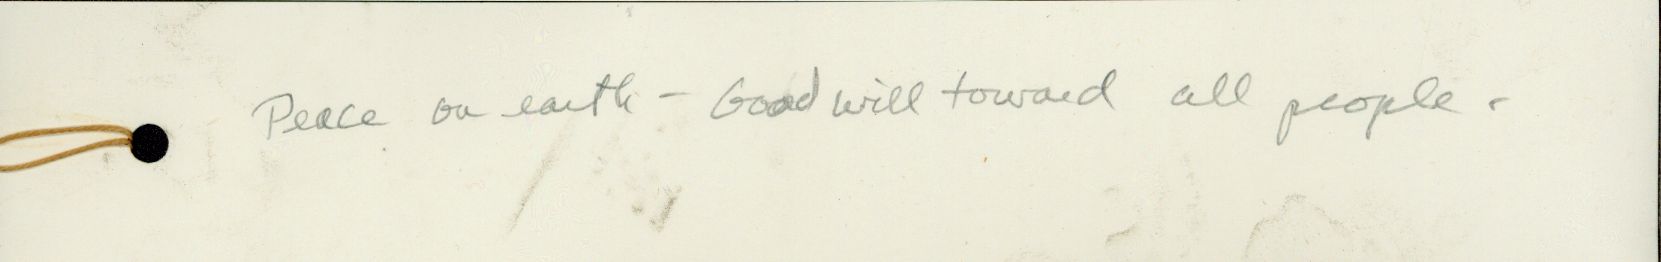 Peace on earth - Good will toward all people.